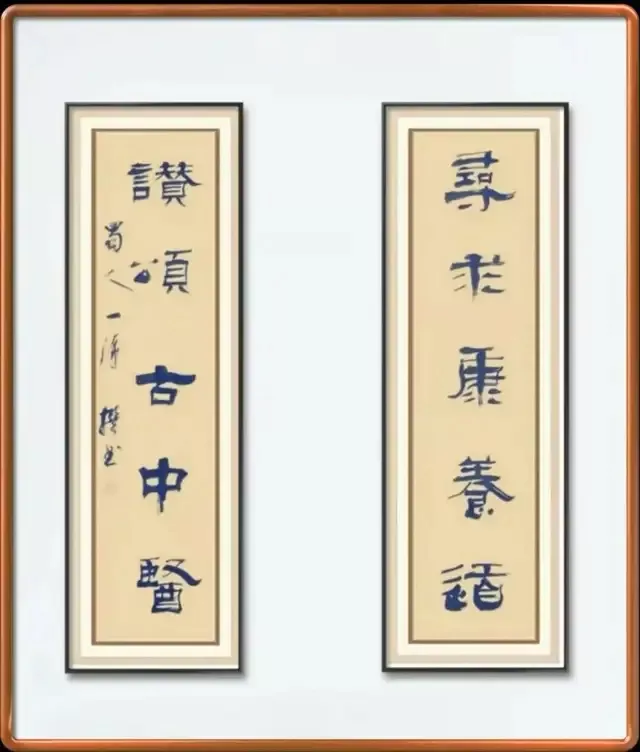 尋求康養道
讚頌古中醫
蜀人一清 撰書